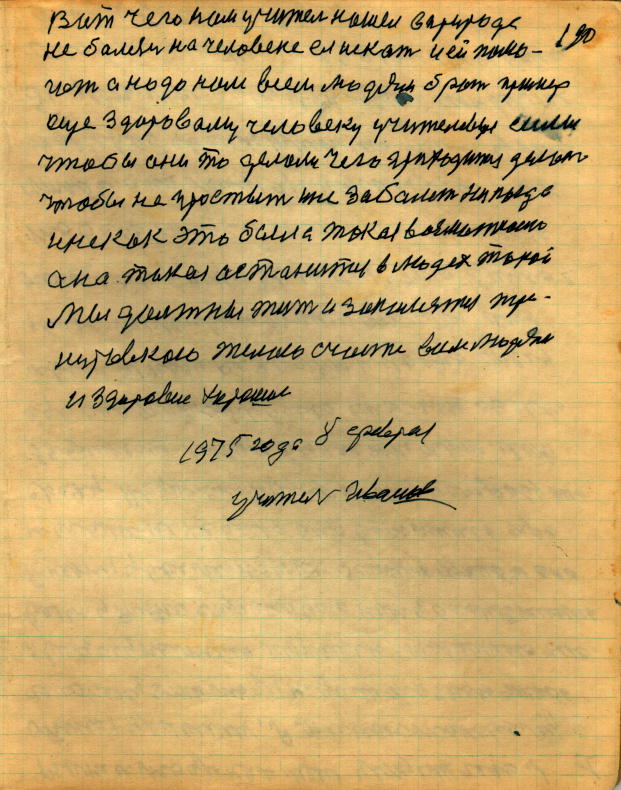 Вот чего нам учител нашел в природе
190
не балезн на человеке ей искат и ей помо-
гат а надо нам всем людям брат пример
еще здороваму человеку учителевы силы
чтобы они то делали чего приходится делат
чтобы не простыт и не заболет никогда
и некак это была такая возможност
она такая останится в людех такой
Мы должны
желаю счасте всем людям
и здоровие харошее
1975 года 8 феврал
учител Иванов